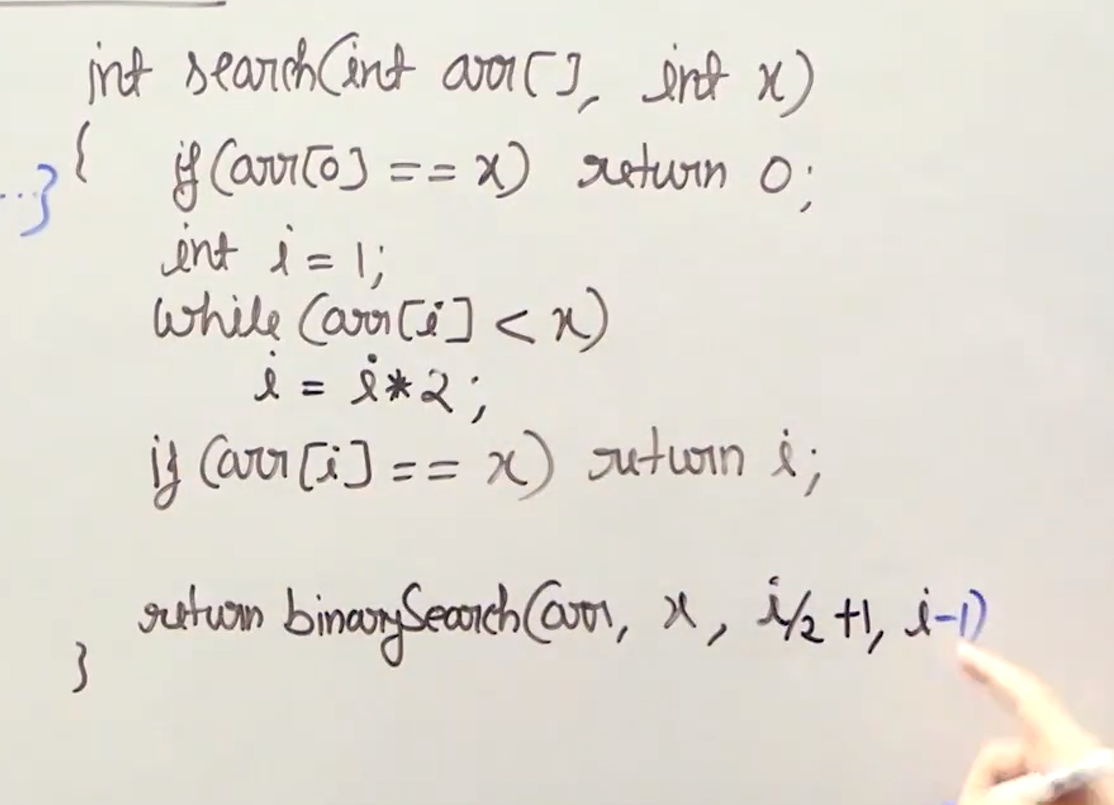 int search(int arr[], int x)
{ if(arr[0] == x) return 0;
...}
int i = 1;
while (arr[i] < x)
i = i*2;
if (arr[i] == x) return i;
return binarySearch(arr, x, i/2 +1, i-1)
}